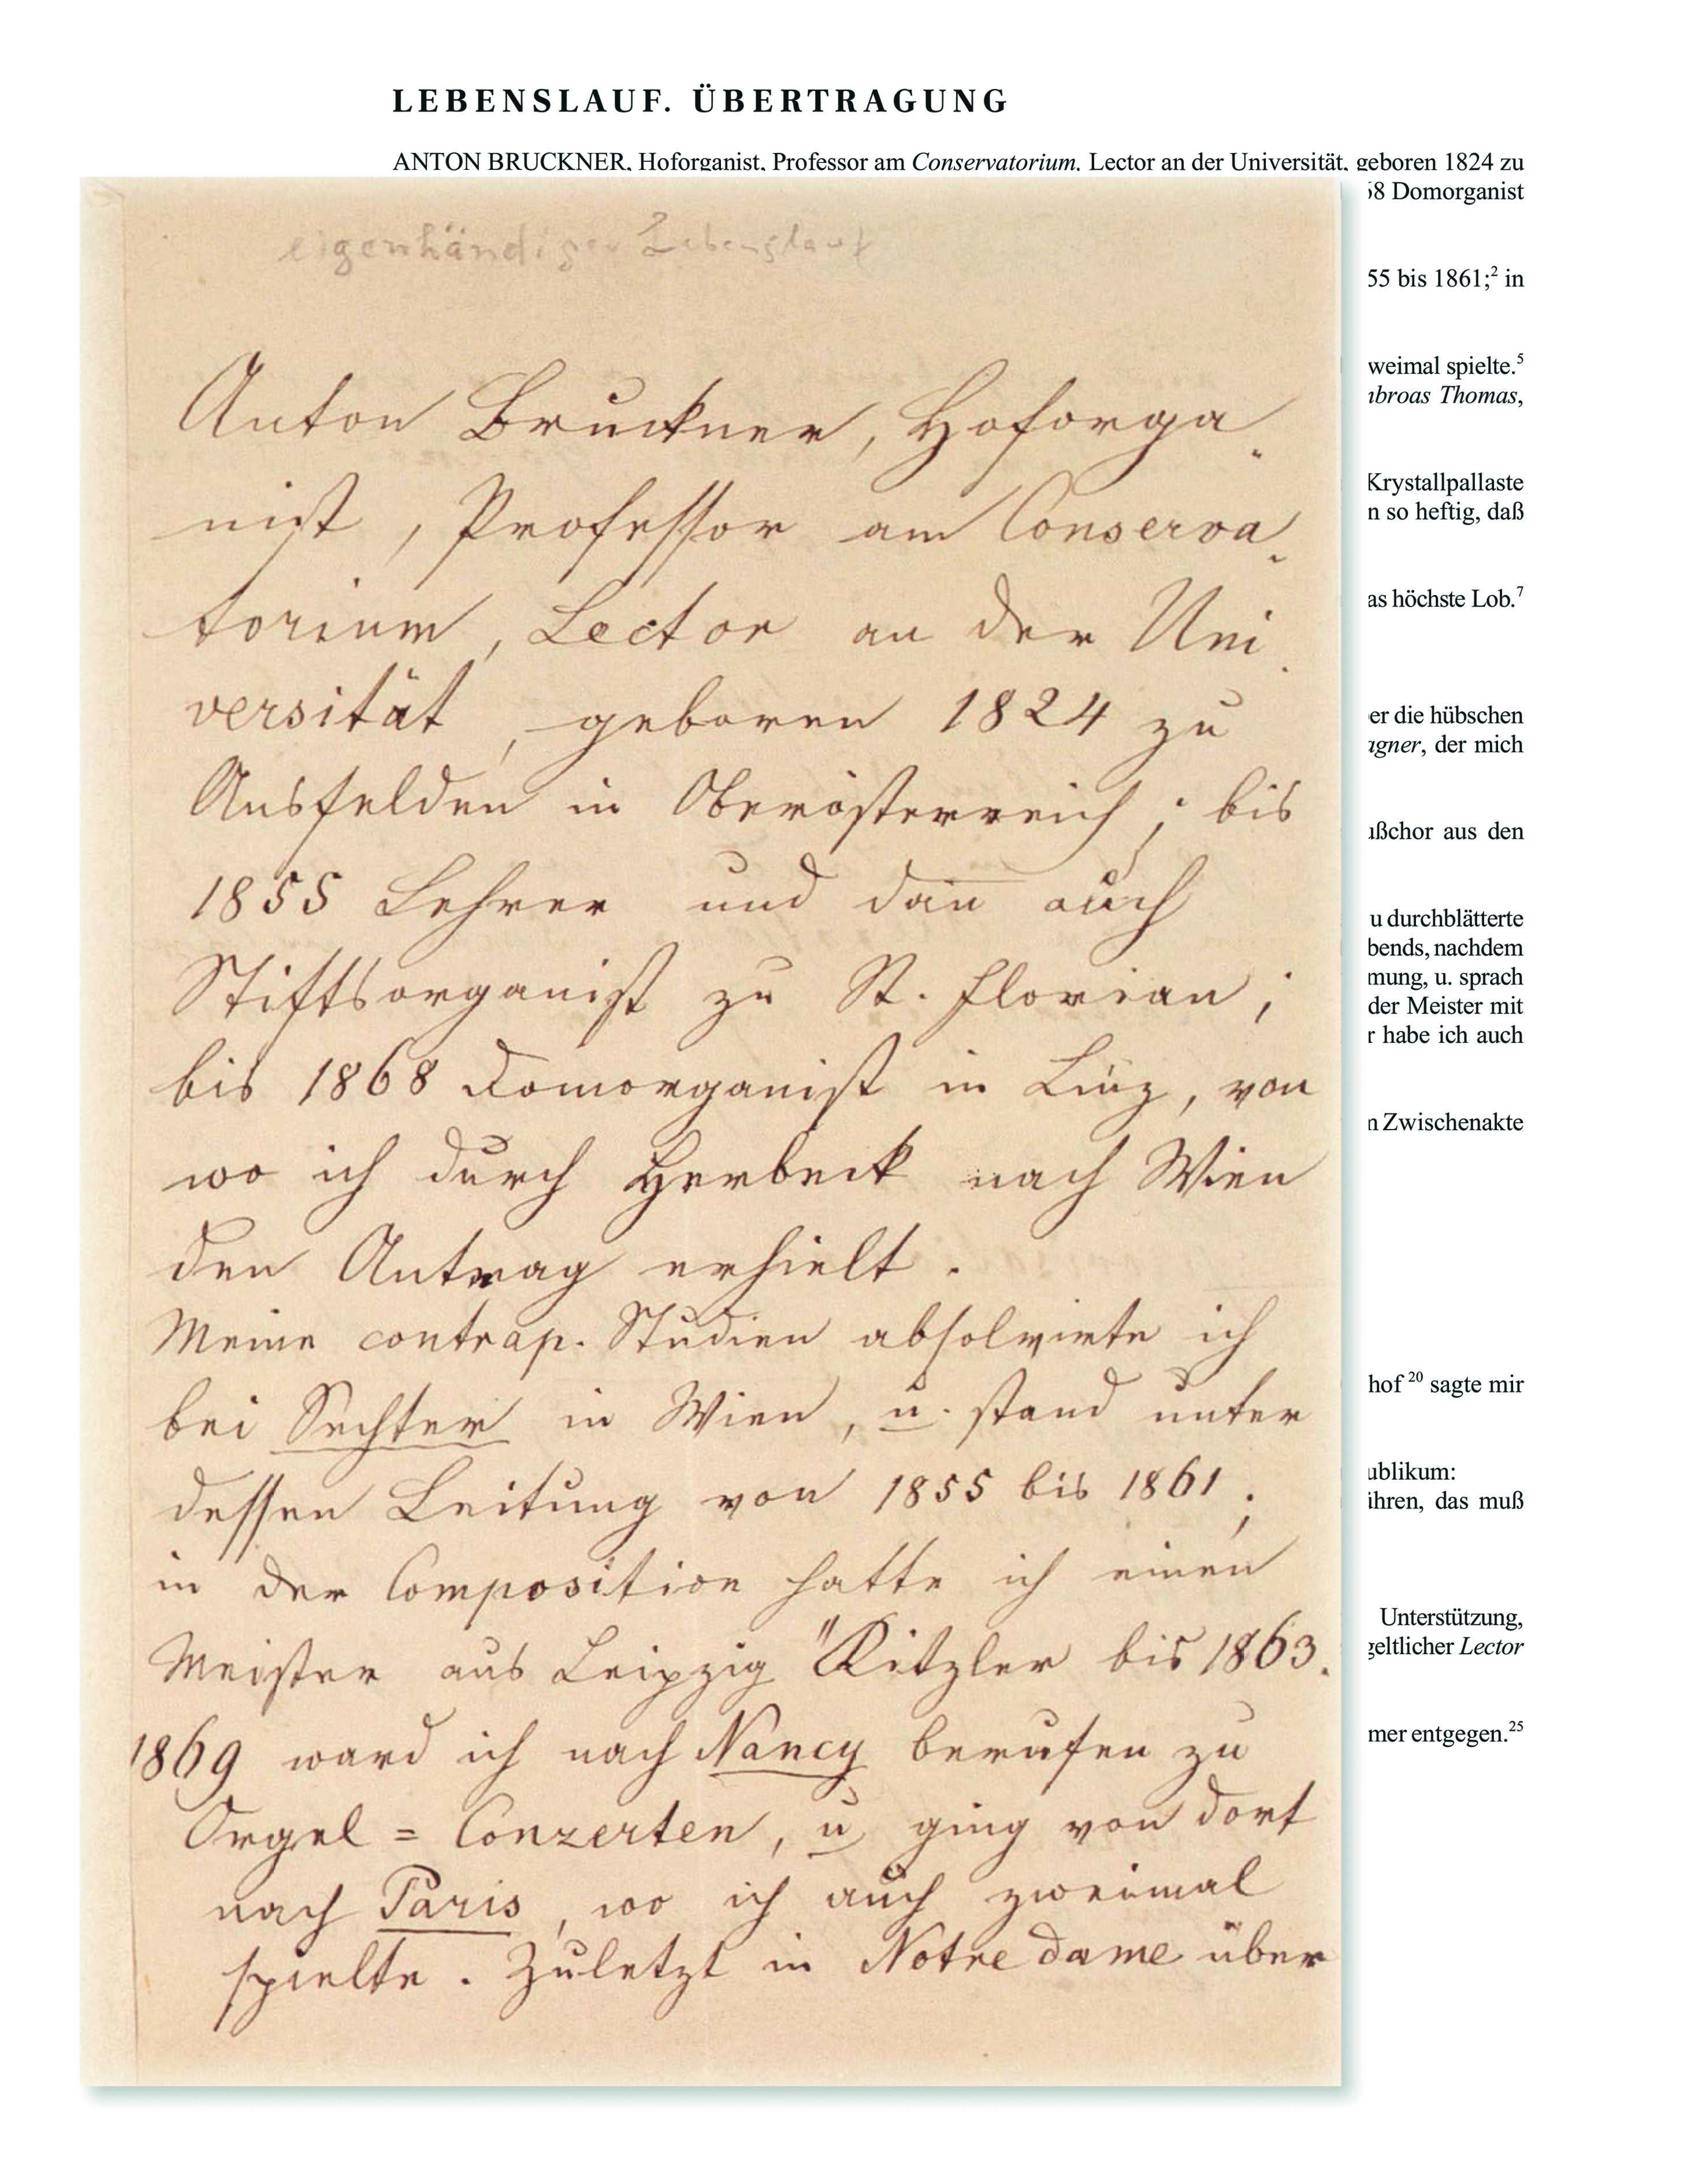 LEBENSLAUF. ÜBERTRAGUNG
ANTON BRUCKNER, Hoforganist, Professor am Conservatorium, Lector an der Universität, geboren 1824 zu
58 Domorganist
55 bis 1861;² in
weimal spielte.⁵
broas Thomas,
Krystallpallaste
n so heftig, daß
as höchste Lob.⁷
er die hübschen
gner, der mich
ßchor aus den
u durchblätterte
bends, nachdem
mung, u. sprach
der Meister mit
r habe ich auch
n Zwischenakte
hof ²⁰ sagte mir
ublikum:
ihren, das muß
Unterstützung,
geltlicher Lector
mer entgegen.²⁵
eigenhändiger Lebenslauf
Anton Bruckner, Hoforga-
nist, Professor am Conserva-
torium, Lector an der Uni-
versität, geboren 1824 zu
Ansfelden in Oberösterreich; bis
1855 Lehrer und dan̅ auch
Stiftsorganist zu St. Florian;
bis 1868 Domorganist in Linz, von
wo ich durch Herbeck nach Wien
den Antrag erhielt.
Meine contrap. Studien absolvirte ich
bei Sechter in Wien, u. stand unter
dessen Leitung von 1855 bis 1861;
in der Composition hatte ich einen
Meister aus Leipzig "Kitzler bis 1863.
1869 ward ich nach Nancy berufen zu
Orgel = Conzerten, u ging von dort
nach Paris, wo ich auch zweimal
spielte. Zuletzt in Notre dame über